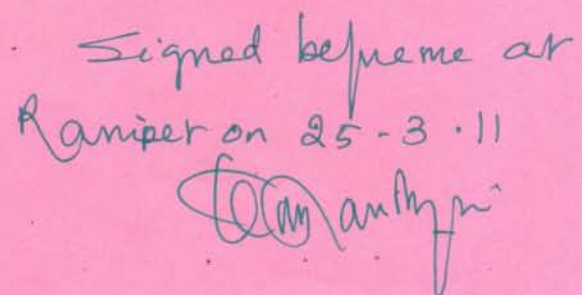 Signed before me at
Ranipet on 25-3.11